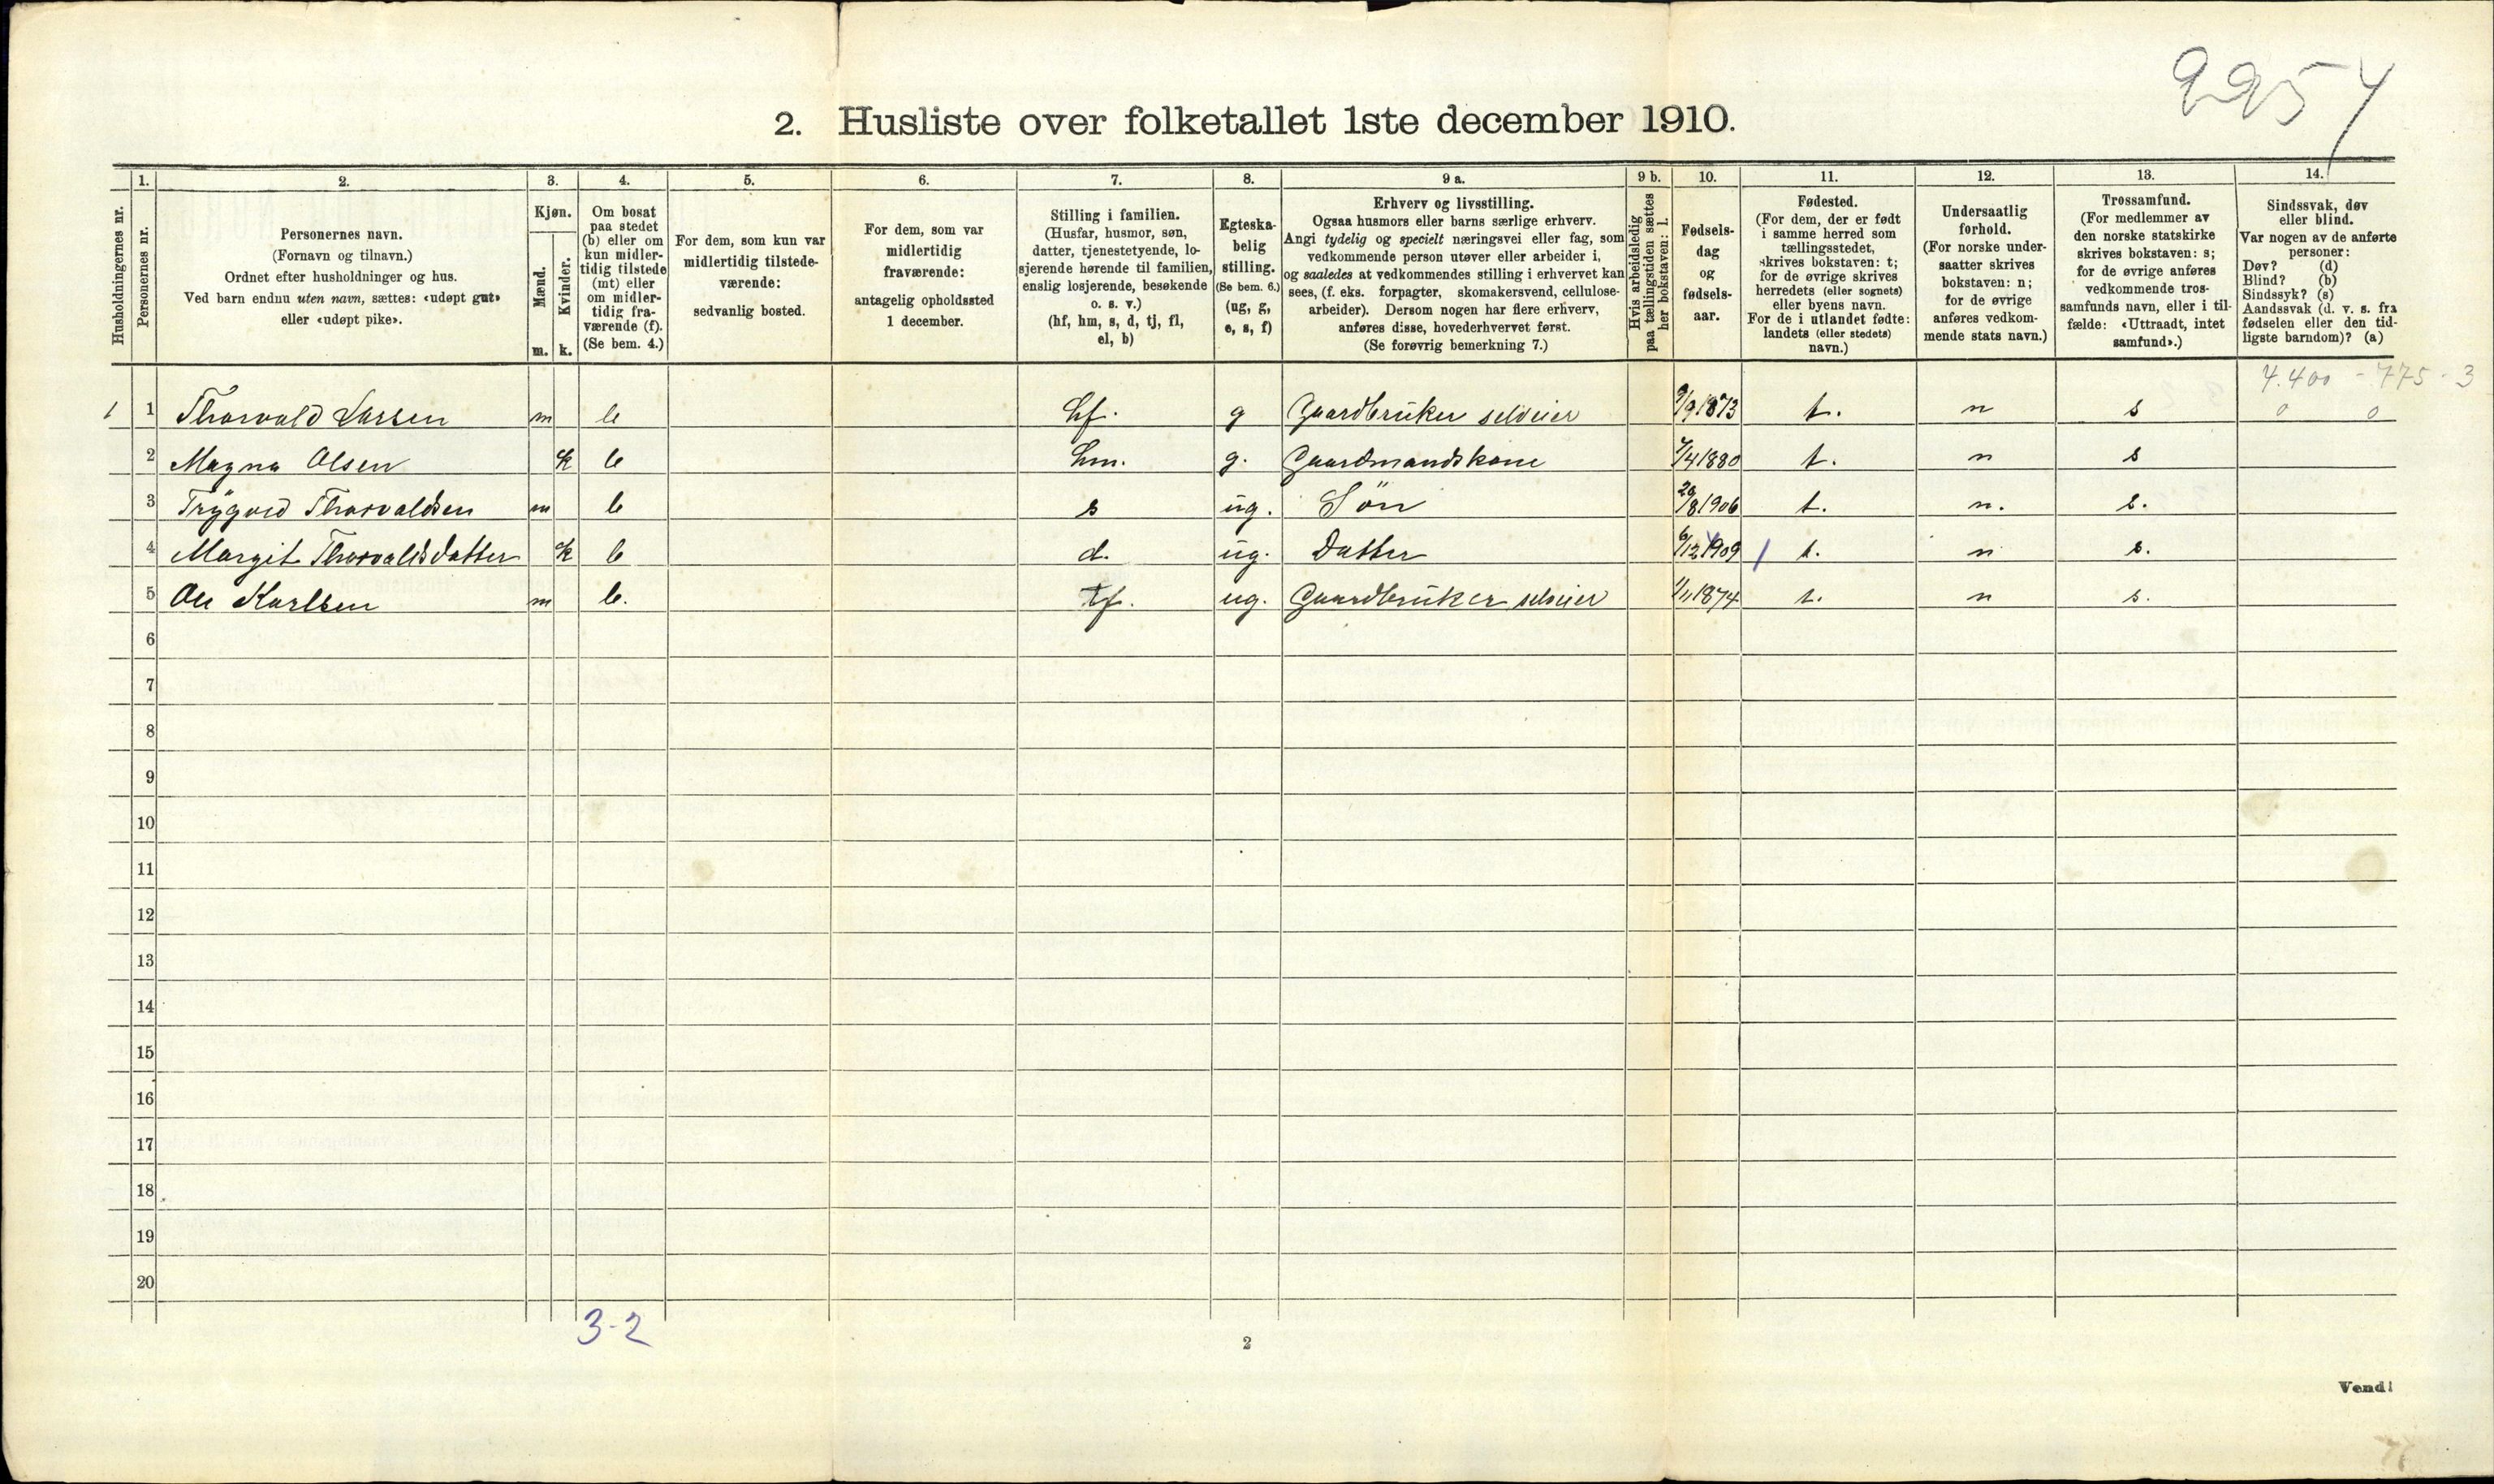 2257
2. Husliste over folketallet 1ste december 1910.
1. 2. 3. 4. 5. 6. 7. 8. 9 a. 9 b. 10. 11. 12. 13. 14.
Husholdningernes nr.
Personernes nr.
Personernes navn.
(Fornavn og tilnavn.)
Ordnet efter husholdninger og hus.
Ved barn endnu uten navn, sættes: «udøpt gut»
eller «udøpt pike».
Kjøn.
Mænd.
Kvinder.
m. k.
Om bosat
paa stedet
(b) eller om
kun midler-
tidig tilstede
(mt) eller
om midler-
tidig fra-
værende (f).
(Se bem. 4.)
For dem, som kun var
midlertidig tilstede-
værende:
sedvanlig bosted.
For dem, som var
midlertidig
fraværende:
antagelig opholdssted
1 december.
Stilling i familien.
(Husfar, husmor, søn,
datter, tjenestetyende, lo-
sjerende hørende til familien,
enslig losjerende, besøkende
o. s. v.)
(hf, hm, s, d, tj, fl,
el, b)
Egteska-
belig
stilling.
(Se bem. 6.)
(ug, g,
e, s, f)
Erhverv og livsstilling.
Ogsaa husmors eller barns særlige erhverv.
Angi tydelig og specielt næringsvei eller fag, som
vedkommende person utøver eller arbeider i,
og saaledes at vedkommendes stilling i erhvervet kan
sees, (f. eks. forpagter, skomakersvend, cellulose-
arbeider). Dersom nogen har flere erhverv,
anføres disse, hovederhvervet først.
(Se forøvrig bemerkning 7.)
Hvis arbeidsledig
paa tællingstiden sættes
her bokstaven: l.
Fødsels-
dag
og
fødsels-
aar.
Fødested.
(For dem, der er født
i samme herred som
tællingsstedet,
skrives bokstaven: t;
for de øvrige skrives
herredets (eller sognets)
eller byens navn.
For de i utlandet fødte:
landets (eller stedets)
navn.)
Undersaatlig
forhold.
(For norske under-
saatter skrives
bokstaven: n;
for de øvrige
anføres vedkom-
mende stats navn.)
Trossamfund.
(For medlemmer av
den norske statskirke
skrives bokstaven: s;
for de øvrige anføres
vedkommende tros-
samfunds navn, eller i til-
fælde: «Uttraadt, intet
samfund».)
Sindssvak, døv
eller blind.
Var nogen av de anførte
personer:
Døv? (d)
Blind? (b)
Sindssyk? (s)
Aandssvak (d. v. s. fra
fødselen eller den tid-
ligste barndom)? (a)
4.400 - 775 - 3
1 1 Thorvald Larsen m b hf. g Gaardbruker selveier 9/9 1873 t. n s 0 0
2 Magna Olsen k b hm. g. Gaardmandskone 7/4 1880 t. n s
3 Trygved Thorvaldsen m b s ug. Sön 29/8 1906 t. n. s.
4 Margit Thorvaldsdatter k b d. ug. Datter 6/12 1909 t. n s.
5 Ole Karlsen m b. ug. Gaardbruker selveier 1/11 1874 t. n s.
6
7
8
9
10
11
12
13
14
15
16
17
18
19
20
3-2
2
Vend!